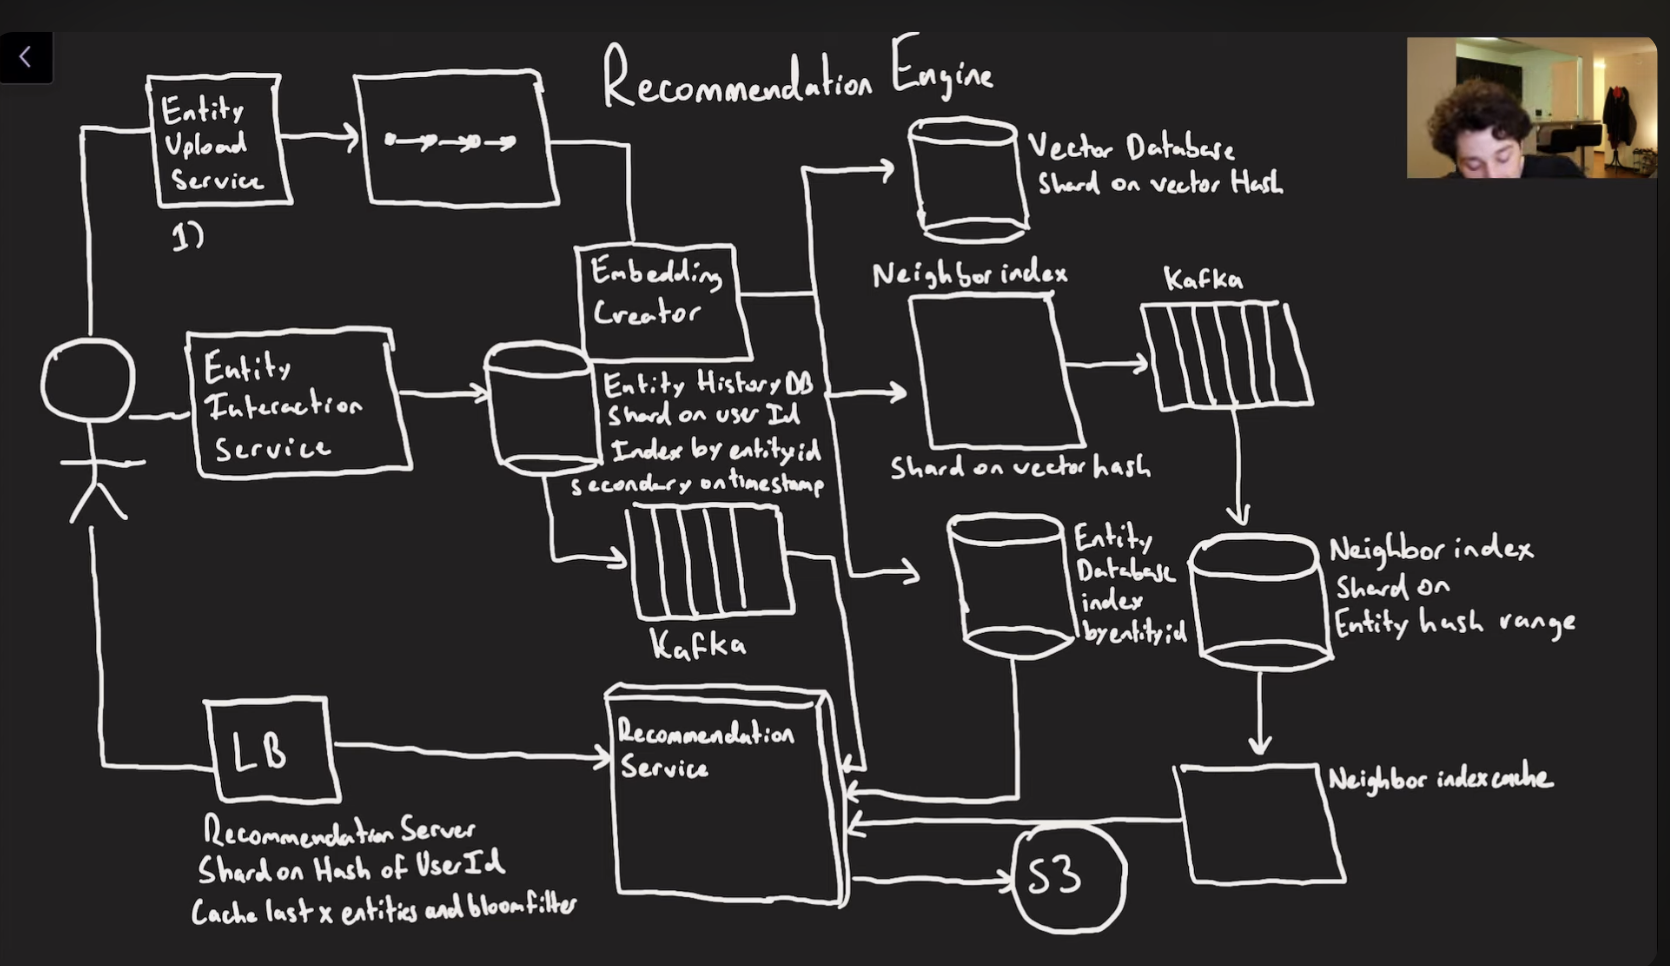 Recommendation Engine
Entity
Upload
Service
1)
Embedding
Creator
Vector Database
Shard on vector Hash
Neighbor index
Shard on vector hash
Kafka
Entity
Interaction
Service
Entity History DB
Shard on user Id
Index by entityid
secondary on timestamp
Kafka
Entity
Database
index
by entity id
Neighbor index
Shard on
Entity hash range
LB
Recommendation Server
Shard on Hash of UserId
Cache last x entities and bloomfilter
Recommendation
Service
S3
Neighbor index cache